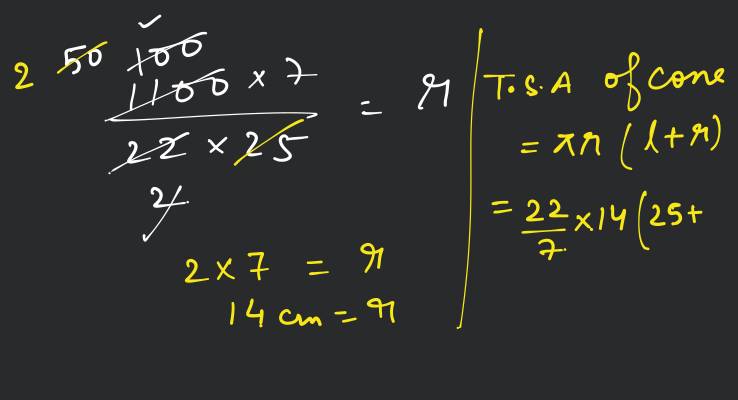 2 50 100
1100 × 7
22 × 25
= r
2
2 × 7 = r
14 cm = r
T.S.A of cone
= πr (l+r)
= 22/7 × 14 (25+